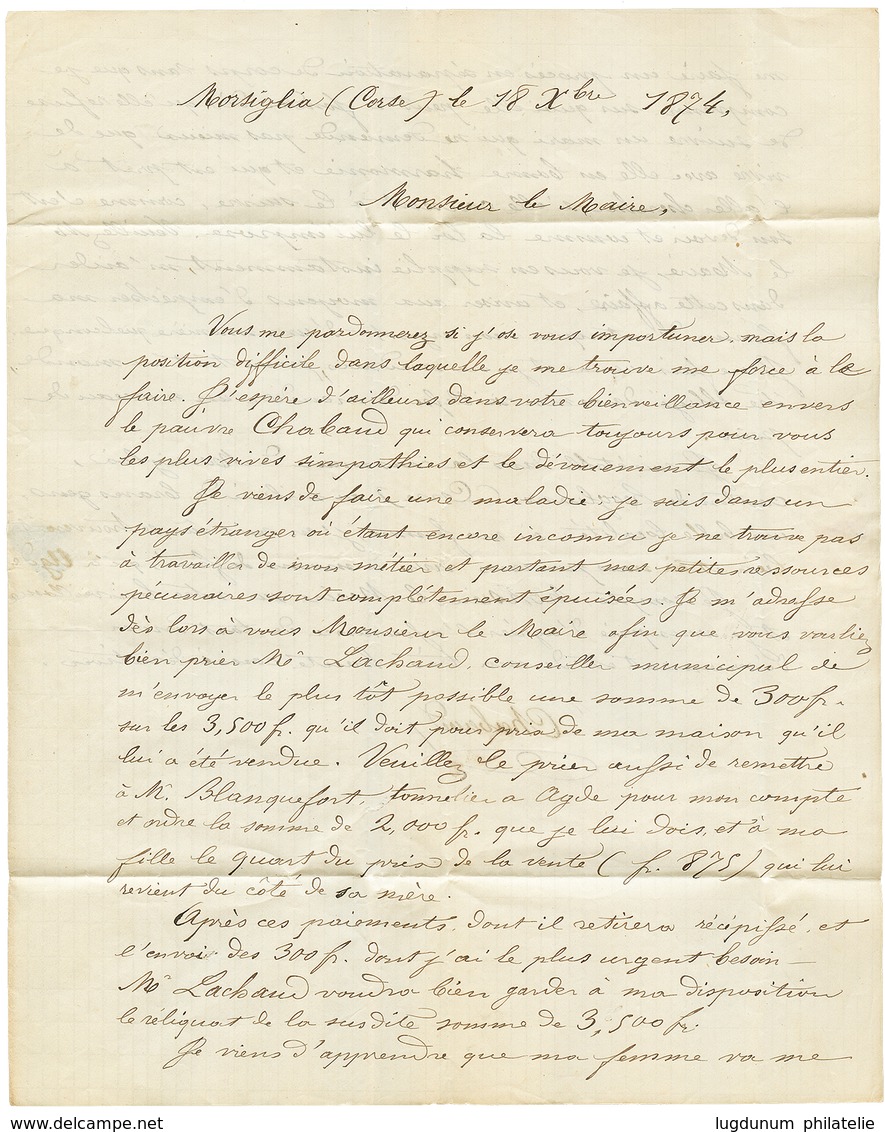 Morsiglia (Corse) le 18 Xbre 1874,
Monsieur le Maire,
Vous me pardonnerez si j'ose vous importuner, mais la
position difficile dans laquelle je me trouve me force à le
faire. J'espère d'ailleurs dans votre bienveillance envers
le pauvre Chabaud qui conservera toujours pour vous
les plus vives simpathies et le dévouement le plus entier.
Je viens de faire une maladie, je suis dans un
pays étranger où étant encore inconnu je ne trouve pas
à travailler de mon métier et partant mes petites ressources
pécunaires sont complétement épuisées. Je m'adresse
dès lors à vous Monsieur le Maire afin que vous vouliez
bien prier Mr Lachaud, conseiller municipal de
m'envoyer le plus tôt possible une somme de 300 fr.
sur les 3,500 fr. qu'il doit pour prix de ma maison qu'il
lui a été vendue. Veuillez le prier aussi de remettre
à Mr. Blanquefort, tonnelier a Agde pour mon compte
et ordre la somme de 2,000 fr. que je lui dois, et à ma
fille le quart du prix de la vente (fr. 875) qui lui
revient du côté de sa mère.
Après ces paiements, dont il retirera récépissé, et
l'envoi des 300 fr. dont j'ai le plus urgent besoin —
Mr Lachaud voudra bien garder à ma disposition
le réliquat de la susdite somme de 3,500 fr.
Je viens d'apprendre que ma femme va me
www.delcampe.net
lugdunum philatelie